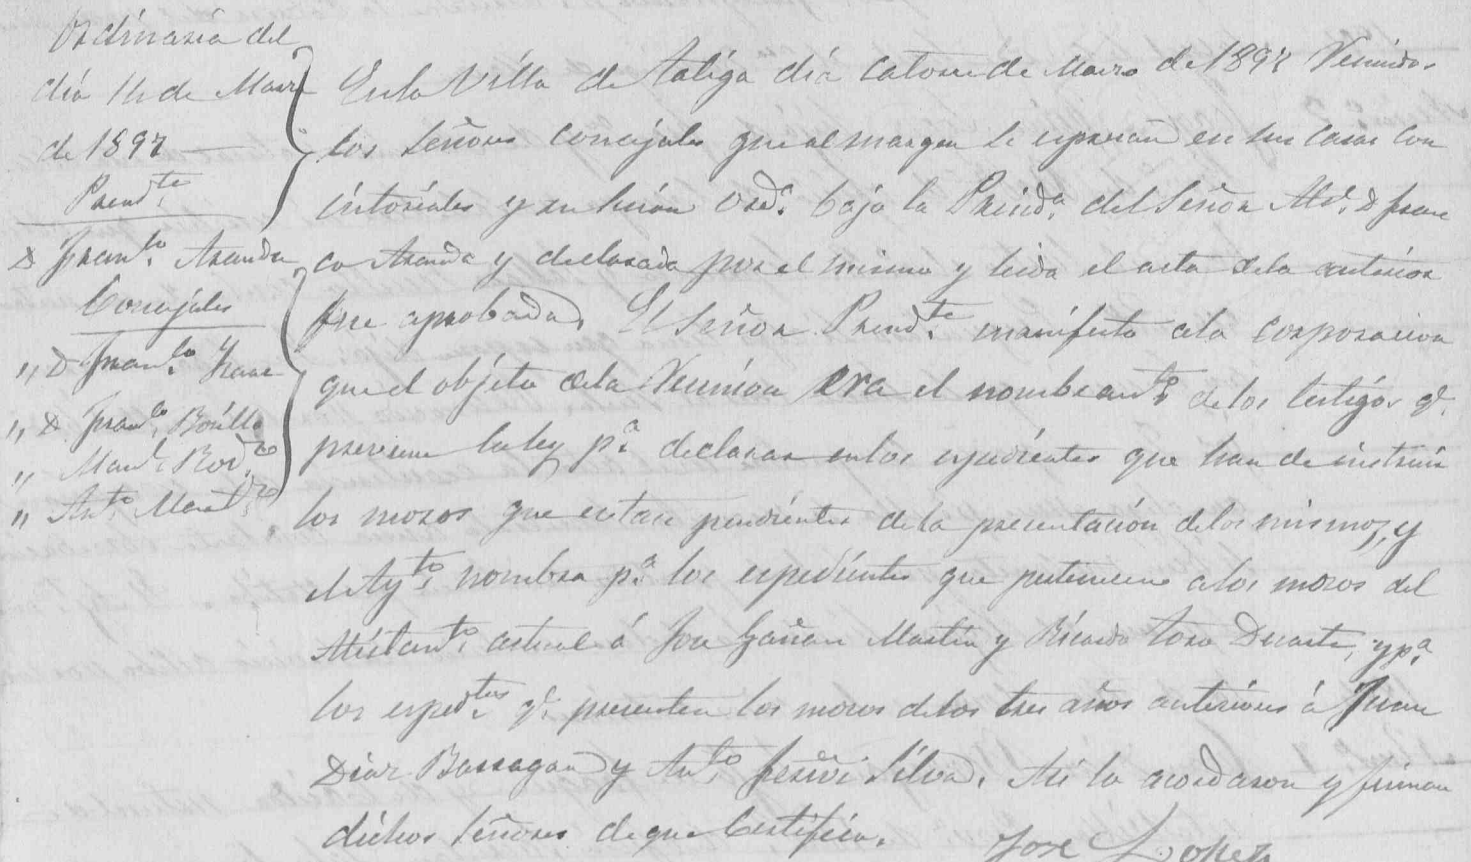 Ordinaria del
día 14 de Marzo
de 1897
Presid.te
D Fran.co Aranda
Concejales
" D Fran.co
" D. Fran.co Borillo
" Man.l Rod.
" Ant.o
En la Villa de Taliga día catorce de Marzo de 1897 Reunidos
los Señores Concejales que al margen se expresan en sus Casas Con
sistoriales y en Sesión Ord.a bajo la Presid.a del Señor Alc.e D Fran
co Aranda y declarada por el mismo y leida el acta dela anterior
fue aprobada. El Señor Presid.te manifesto ala corporacion
que el objeto dela Reunion era el nombram.to de los testigos q.e
previene la ley p.a declarar enlos espedientes que han de instruir
los mozos que estan pendientes dela presentación delos mismos, y
el Ay.to nombra p.a los espedientes que pertenecen alos mozos del
Alistam.to actual á Jose Gañan Martin y Ricardo Toro Duarte, y p.a
los esped.tes q.e presenten los mozos delos tres años anteriores á Juan
Diaz Barragan y Ant.o Silva. Asi lo acordaron y firman
dichos Señores de que Certifico.
Jose Lopez